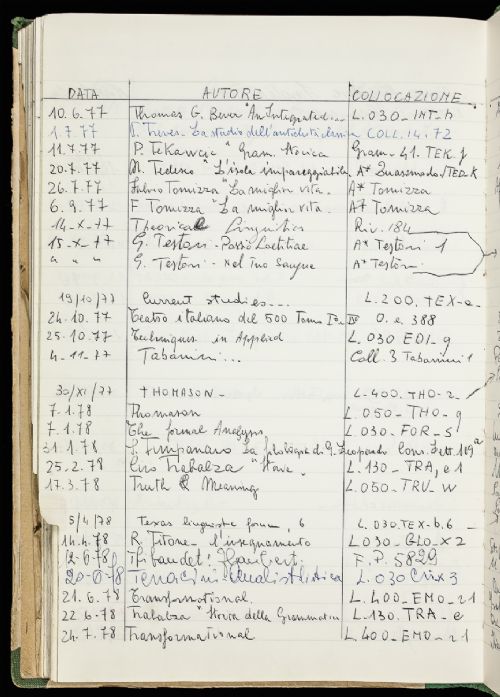 DATA AUTORE COLLOCAZIONE
10.6.77 Thomas G. Bever "An Integrated... L.030-INT-h
1.7.77 P. Treves - Lo studio dell'antichità classica COLL.14.72
11.7.77 P. Tekavčić "Gram. storica Gram-41.TEK.f
20.7.77 M. Tedeno "L'isola impareggiabile A* Quasimodo/TED.K
26.7.77 Fulvio Tomizza "La miglior vita. A* Tomizza
6.9.77 F Tomizza "La miglior vita. A* Tomizza
14-X-77 Theoretical Linguistics Riv. 184
15-X-77 G. Testori - Passio Laetitiae A* Testori 1
" " " G. Testori - Nel Tuo Sangue A* Testori
19/10/77 Current studies... L.200. TEX-e-
24.10.77 Teatro italiano del 500 Tomo I° IV O.e.388
25.10.77 Techniques in Applied L.030 EDI-g
4-11-77 Tabarrini... Coll. 3 Tabarrini 1
30/XI/77 THOMASON- L-400.THO-2
7.1.78 Thomason L.050-THO-g
7.1.78 The formal Analysis L.030-FOR-S
31.1.78 S. Timpanaro La filologia di G. Leopardi Cons. Lett. 119a
25.2.78 Ciro Trabalza "Storia L.130-TRA, e 1
17.3.78 Truth & Meaning L.050-TRU-W
5/4/78 Texas linguistic forum, 6 L.030.TEX-b.6-
14.4.78 R. Titone - l'insegnamento L030-GLO-X2
12-6-78 Thibaudet: Flaubert. F.P. 5829
20-6-78 Terracini L.030
21.6.78 Transformational L.400-EMO-21
22.6.78 Trabalza "Storia della Grammatica L.130.TRA-e
24.7.78 Transformational L.400-EMO-21